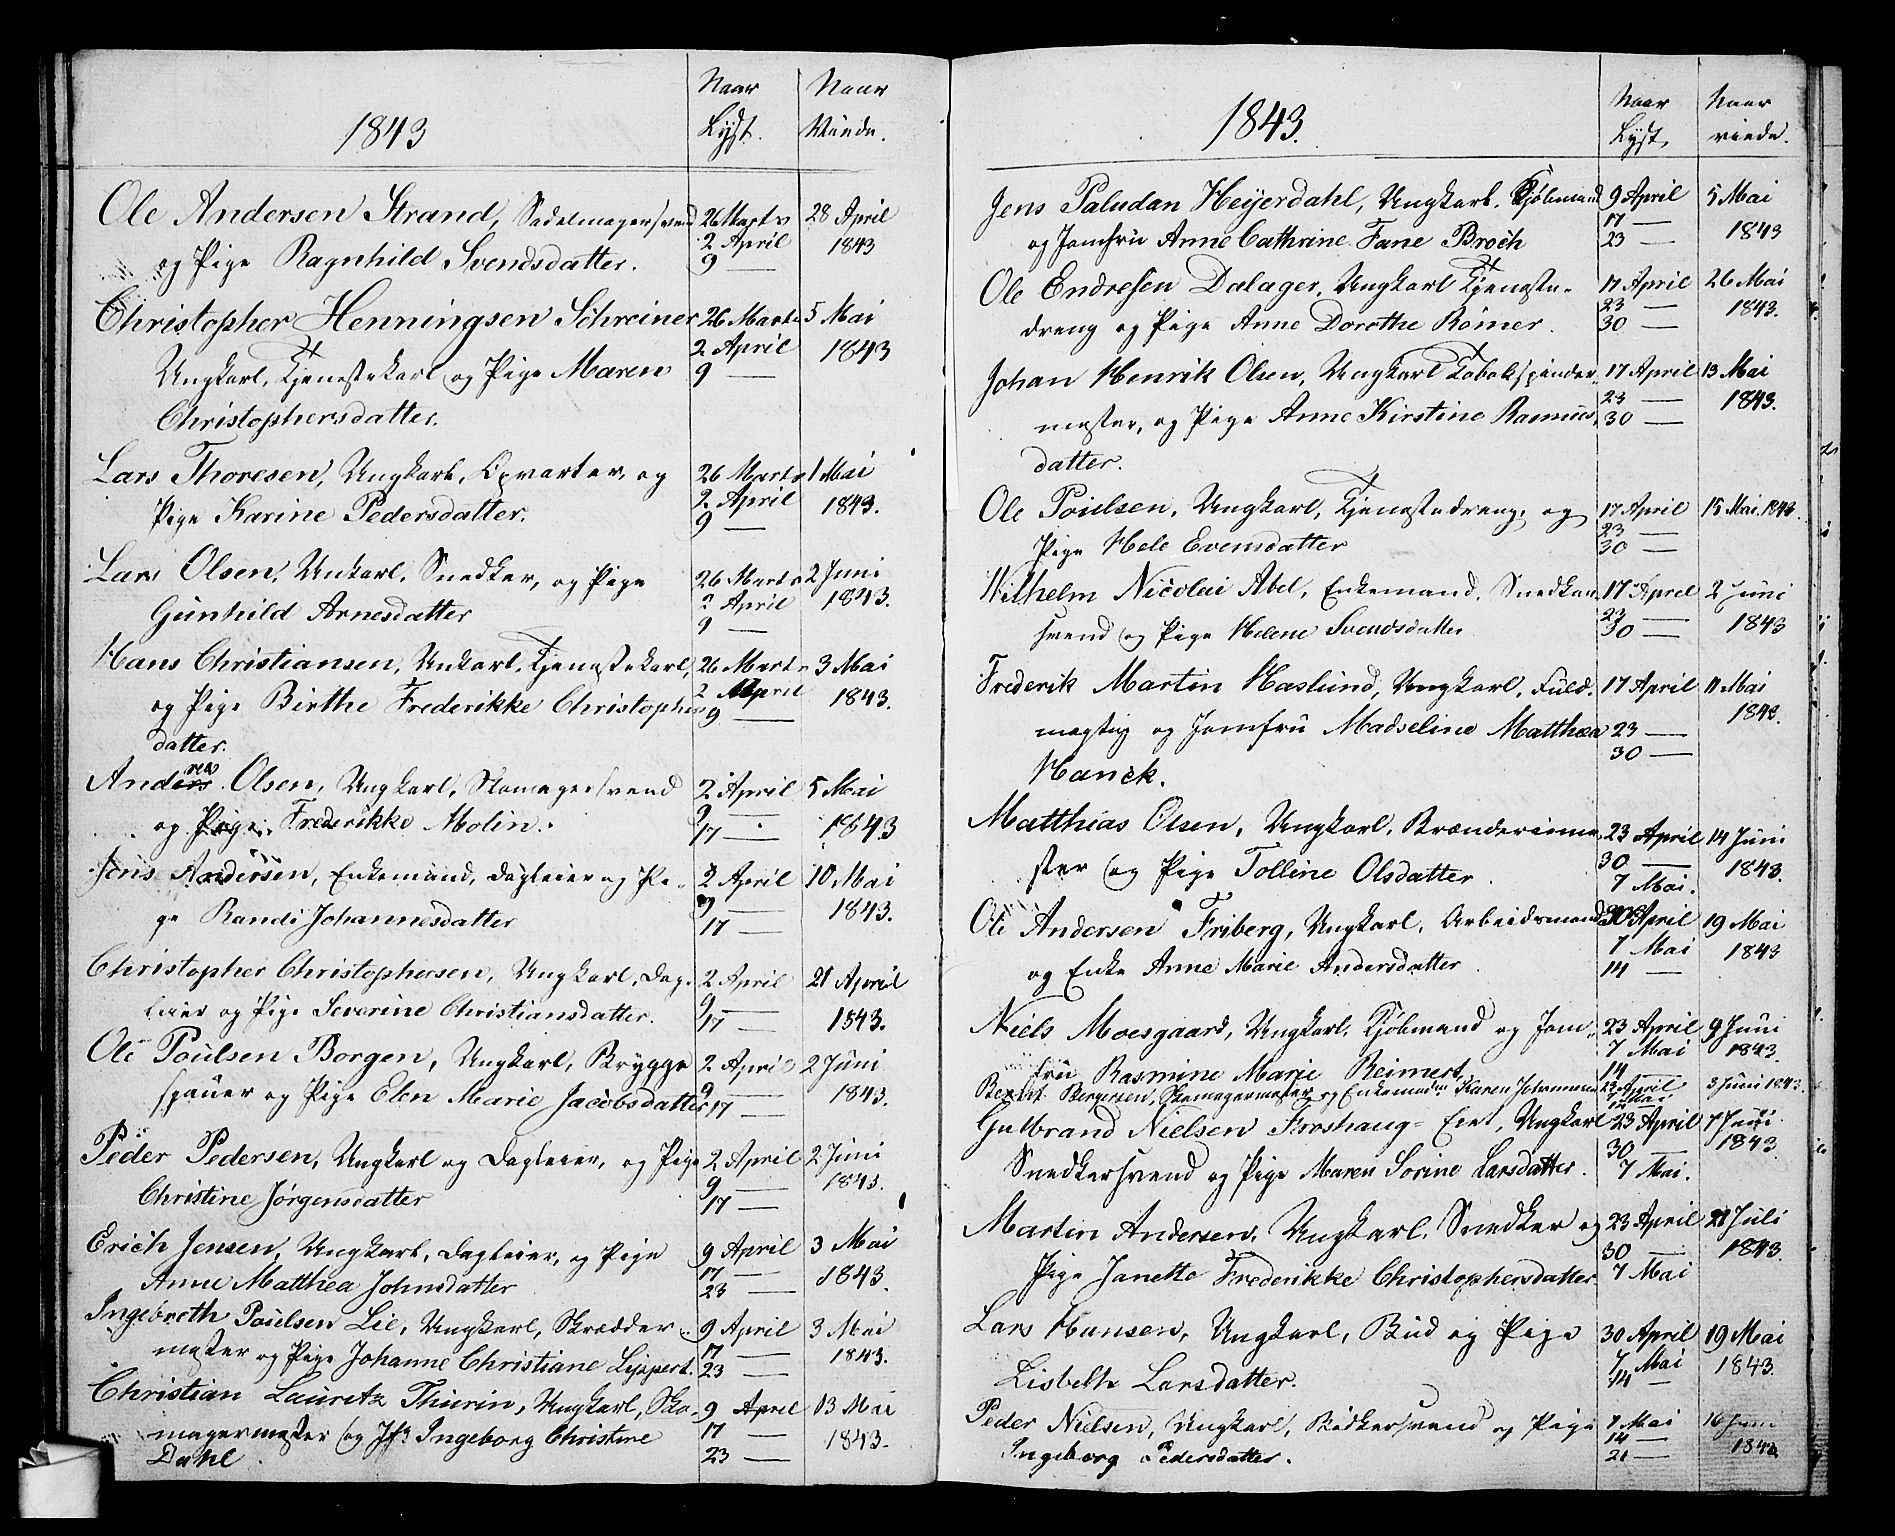 1843
Naar Lyst.
Naar Viede.
Ole Andersen Strand, Sadelmagersvend 26 Marts 28 April
2 April 1843
og Pige Ragnhild Svendsdatter. 9 —
Christopher Henningsen Schreiner 26 Marts 5 Mai
2 April 1843
Ungkarl, Tjenestekarl og Pige Maren 9 —
Christophersdatter.
Lars Thoresen, Ungkarl, Opvarter, og 26 Marts 1 Mai
2 April 1843.
Pige Karine Pedersdatter. 9 —
Lars Olsen, Unkarl, Snedker, og Pige 26 Marts 2 Juni
2 April 1843.
Gunhild Arnesdatter 9 —
Hans Christiansen, Unkarl, Tjenestekarl, 26 Marts 3 Mai
2 April 1843.
og Pige Birthe Frederikke Christophers 9 —
datter.
Anders rea Olsen, Ungkarl, Skomagersvend 2 April 5 Mai
9 —
og Pige Frederikke Molin. 17 — 1843
Andersen, Enkemand, Dagleier og Pi- 2 April 10 Mai
9 — 1843.
ge Randi Johannesdatter 17 —
Christopher Christophersen, Ungkarl, Dag- 2 April 21 April
9 —
leier og Pige Severine Christiansdatter. 17 — 1843.
Ole Poulsen Borgen, Ungkarl, Brygge 2 April 2 Juni
9 — 1843.
og Pige Elen Marie Jacobsdatter 17 —
Peder Pedersen, Ungkarl og Dagleier, og Pige 2 April 2 Juni
9 — 1843.
Christine Jørgensdatter 17 —
Erich Jensen, Ungkarl, Dagleier, og Pige 9 April 3 Mai
17 — 1843.
Anne Matthea Johnsdatter 23 —
Ingebreth Poulsen Lie, Ungkarl, Skrædder- 9 April 3 Mai
17 — 1843.
mester og Pige Johanne Christiane Lippert. 23 —
Christian Lauretz Thurin, Ungkarl, Sko- 9 April 13 Mai
17 —
magermester og Jfr Ingeborg Christine 1843.
Dahl. 23 —
1843.
Naar Lyst.
Naar viede.
Jens Paludan Heyerdahl, Ungkarl, Kjøbmand 9 April 5 Mai
17 — 1843
og Jomfru Anne Cathrine Fane Broch 23 —
Ole Endresen Dalager, Ungkarl Tjeneste- 17 April 26 Mai
23 — 1843.
dreng og Pige Anne Dorothe Rømer. 30 —
Johan Henrik Olsen, Ungkarl Tobakspinder- 17 April 13 Mai
23 — 1843.
mester, og Pige Anne Kirstine Rasmus- 30 —
datter.
Ole Poulsen, Ungkarl, Tjenestedreng, og 17 April 15 Mai 1843.
23 —
Pige Hele Evensdatter 30 —
Wilhelm Nicolai Abel, Enkemand, Snedker 17 April 2 Juni
23 — 1843
svend og Pige Helene Svendsdatter 30 —
Frederik Martin Haslund, Ungkarl, Fuld- 17 April 11 Mai
1843.
mægtig og Jomfru Madseline Matthea 23 —
30 —
Hanck.
Matthias Olsen, Ungkarl, Brænderime- 23 April 14 Juni
30 — 1843.
ster og Pige Tolline Olsdatter. 7 Mai.
Ole Andersen Friberg, Ungkarl, Arbeidsmand 30 April 19 Mai
7 Mai 1843
og Enke Anne Marie Andersdatter. 14 —
Niels Moesgaard, Ungkarl, Kjøbmand og Jom- 23 April 9 Juni
7 Mai 1843.
fru Rasmine Marie Reimert, 14 —
Berger Bergersen, Skomagermester og Karen Johannesen 23 April 3 Juni 1843.
Gulbrand Nielsen Froshaug-Eiet, Ungkarl 23 April 7 Juni
30 — 1843.
Snedkersvend og Pige Maren Sorine Larsdatter. 7 Mai.
Martin Andersen, Ungkarl, Snedker og 23 April Juli
30 — 1843.
Pige Janette Frederikke Christophersdatter 7 Mai
Lars Hansen, Ungkarl, Bud og Pige 30 April 19 Mai
7 Mai 1843.
Lisbeth Larsdatter. 14 —
Peder Nielsen, Ungkarl, Bødkersvend og Pige 7 Mai 16 Juni
14 — 1843
Ingeborg Pedersdatter. 21 —